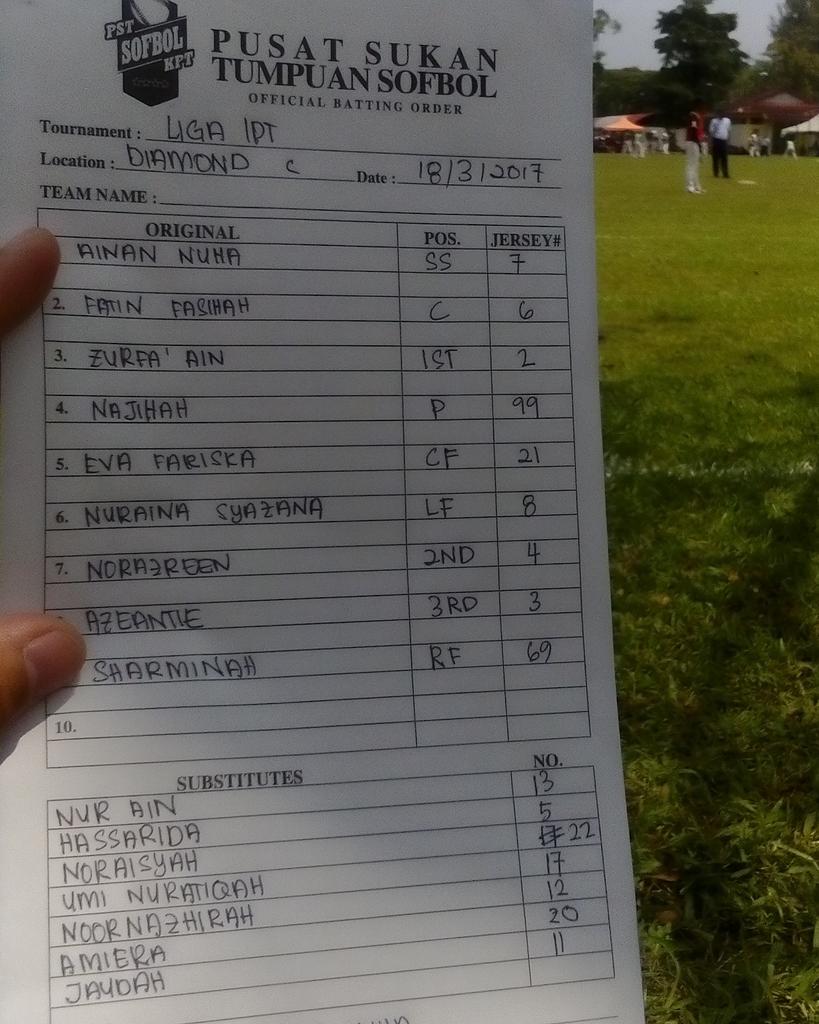 PST
SOFBOL
KPT
PUSAT SUKAN
TUMPUAN SOFBOL
OFFICIAL BATTING ORDER
Tournament : LIGA IPT
Location : DIAMOND C Date : 18/3/2017
TEAM NAME :
ORIGINAL POS. JERSEY#
AINAN NUHA SS 7
2. FATIN FASIHAH C 6
3. ZURFA' AIN 1ST 2
4. NAJIHAH P 99
5. EVA FARISKA CF 21
6. NURAINA SYAZANA LF 8
7. NORAZREEN 2ND 4
AZEANTIE 3RD 3
SHARMINAH RF 69
10.
SUBSTITUTES NO.
NUR AIN 13
HASSARIDA 5
NORAISYAH 22
UMI NURATIQAH 17
NOORNAZHIRAH 12
AMIERA 20
JAYDAH 11